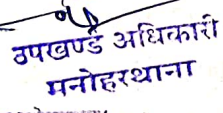 उपखण्ड अधिकारी
मनोहरथाना